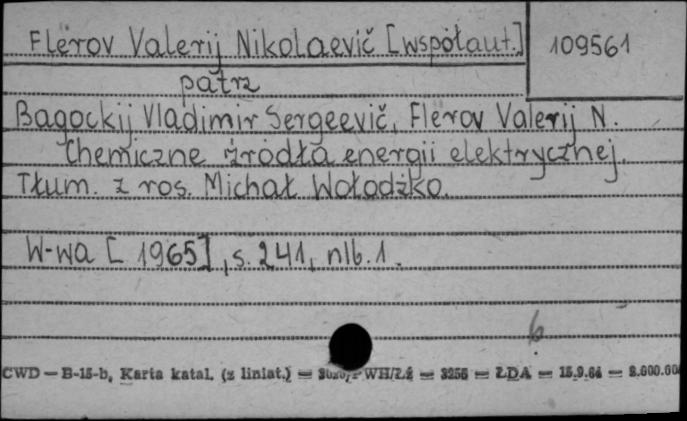 Flerov Valerij Nikolaevič [współaut.]
109561
patrz
Bagockij Vladimir Sergeevič, Flerov Valerij N.
Chemiczne źródła energii elektrycznej.
Tłum. z ros. Michał Wołodźko.
W-wa [1965], s. 241, nlb. 1.
6
CWD — B-15-b, Karta katal. (z liniat.) = WH/Łź = 3255 = ŁDA = 15.9.64 =